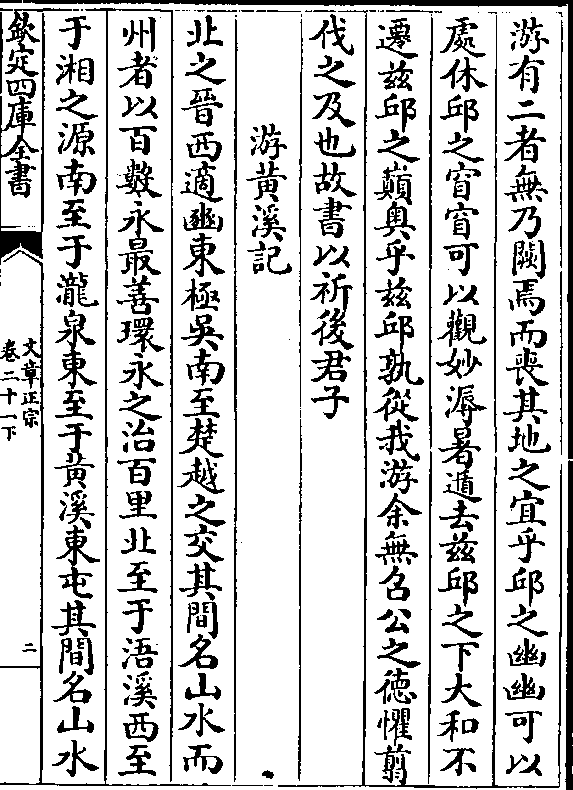 游有二者無乃闕焉而喪其地之宜乎邱之幽幽可以
處休邱之窅窅可以觀妙溽暑遁去兹邱之下大和不
遷兹邱之巔奥乎兹邱孰從我游余無召公之德懼翦
伐之及也故書以祈後君子
游黄溪記
北之晉西適豳東極吳南至楚越之交其間名山水而
州者以百數永最善環永之治百里北至于浯溪西至
于湘之源南至于瀧泉東至于黄溪東屯其間名山水
欽定四庫全書
文章正宗
卷二十一下
二